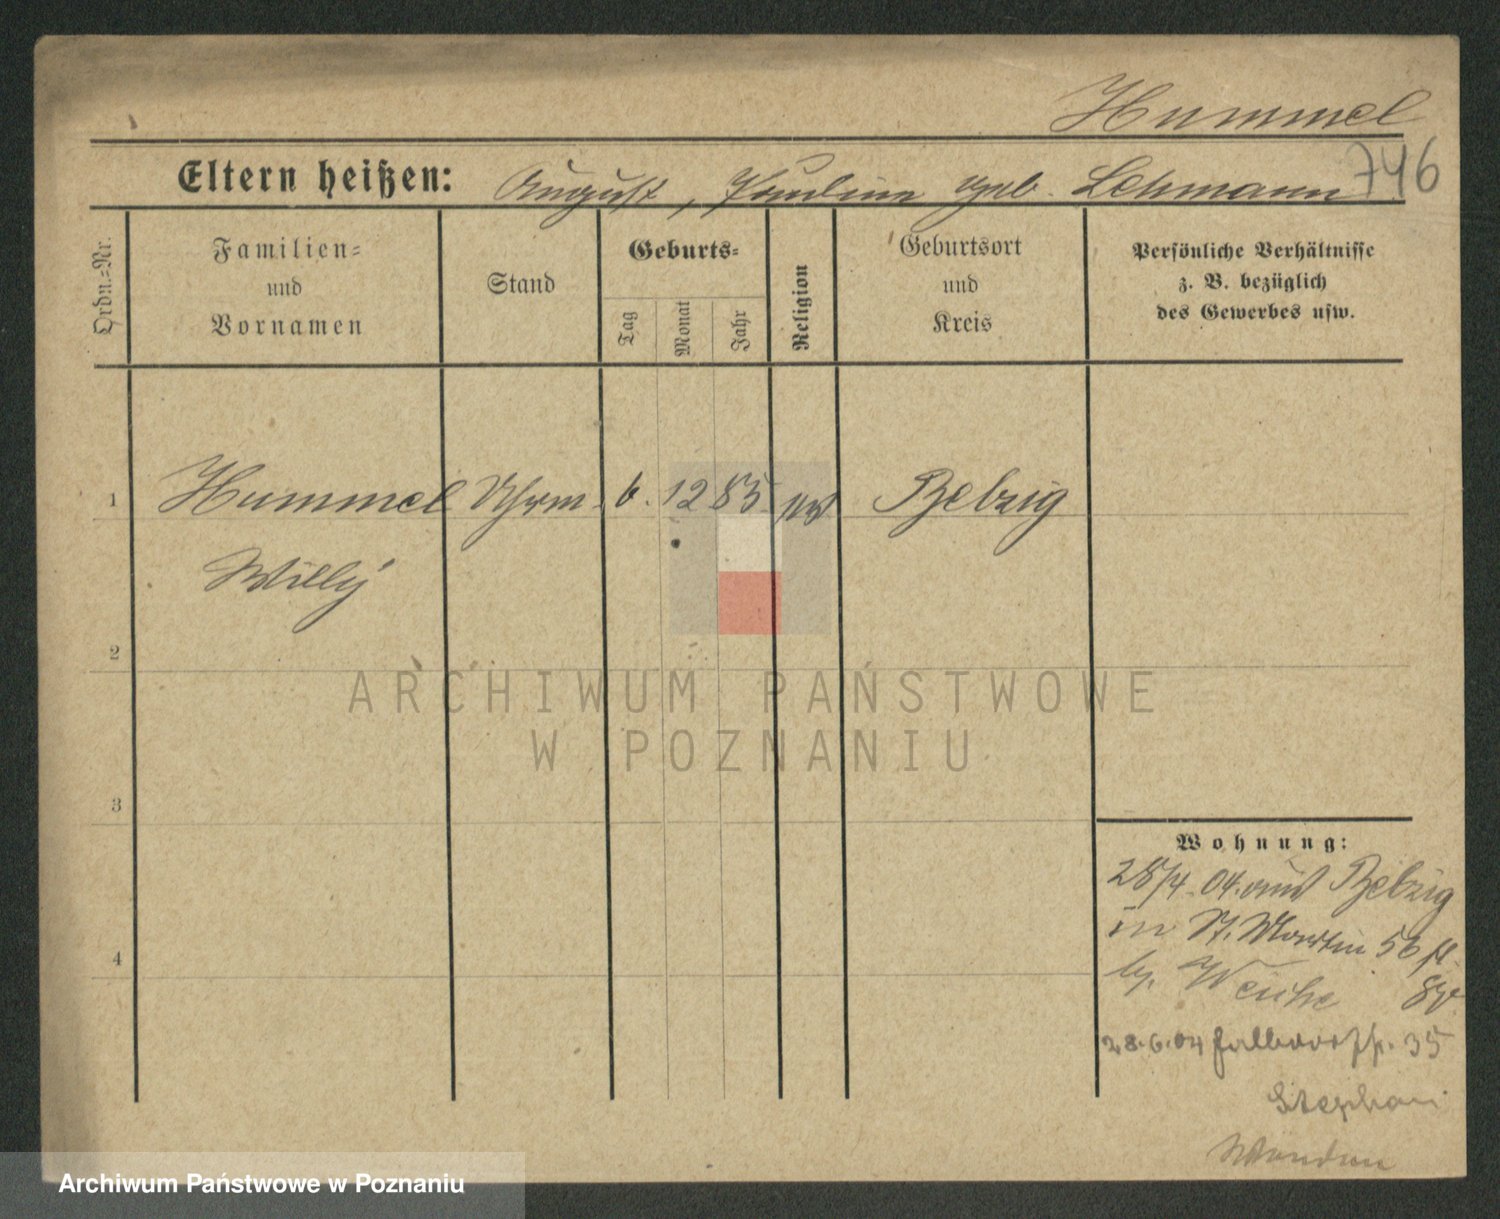 Hummel
746
Eltern heißen: August, Pauline geb. Lehmann
Ordn.-Nr.
Familien-
und
Vornamen
Stand
Geburts-
Tag
Monat
Jahr
Religion
Geburtsort
und
Kreis
Persönliche Verhältnisse
z. B. bezüglich
des Gewerbes usw.
1
Hummel Uhrm. 6. 12 85 Belzig
Willy
2
ARCHIWUM PAŃSTWOWE
W POZNANIU
3
4
Wohnung:
28/4. 04. aus Belzig
in St. Martin 56
by.
28.6.04 35
Stephan
Archiwum Państwowe w Poznaniu